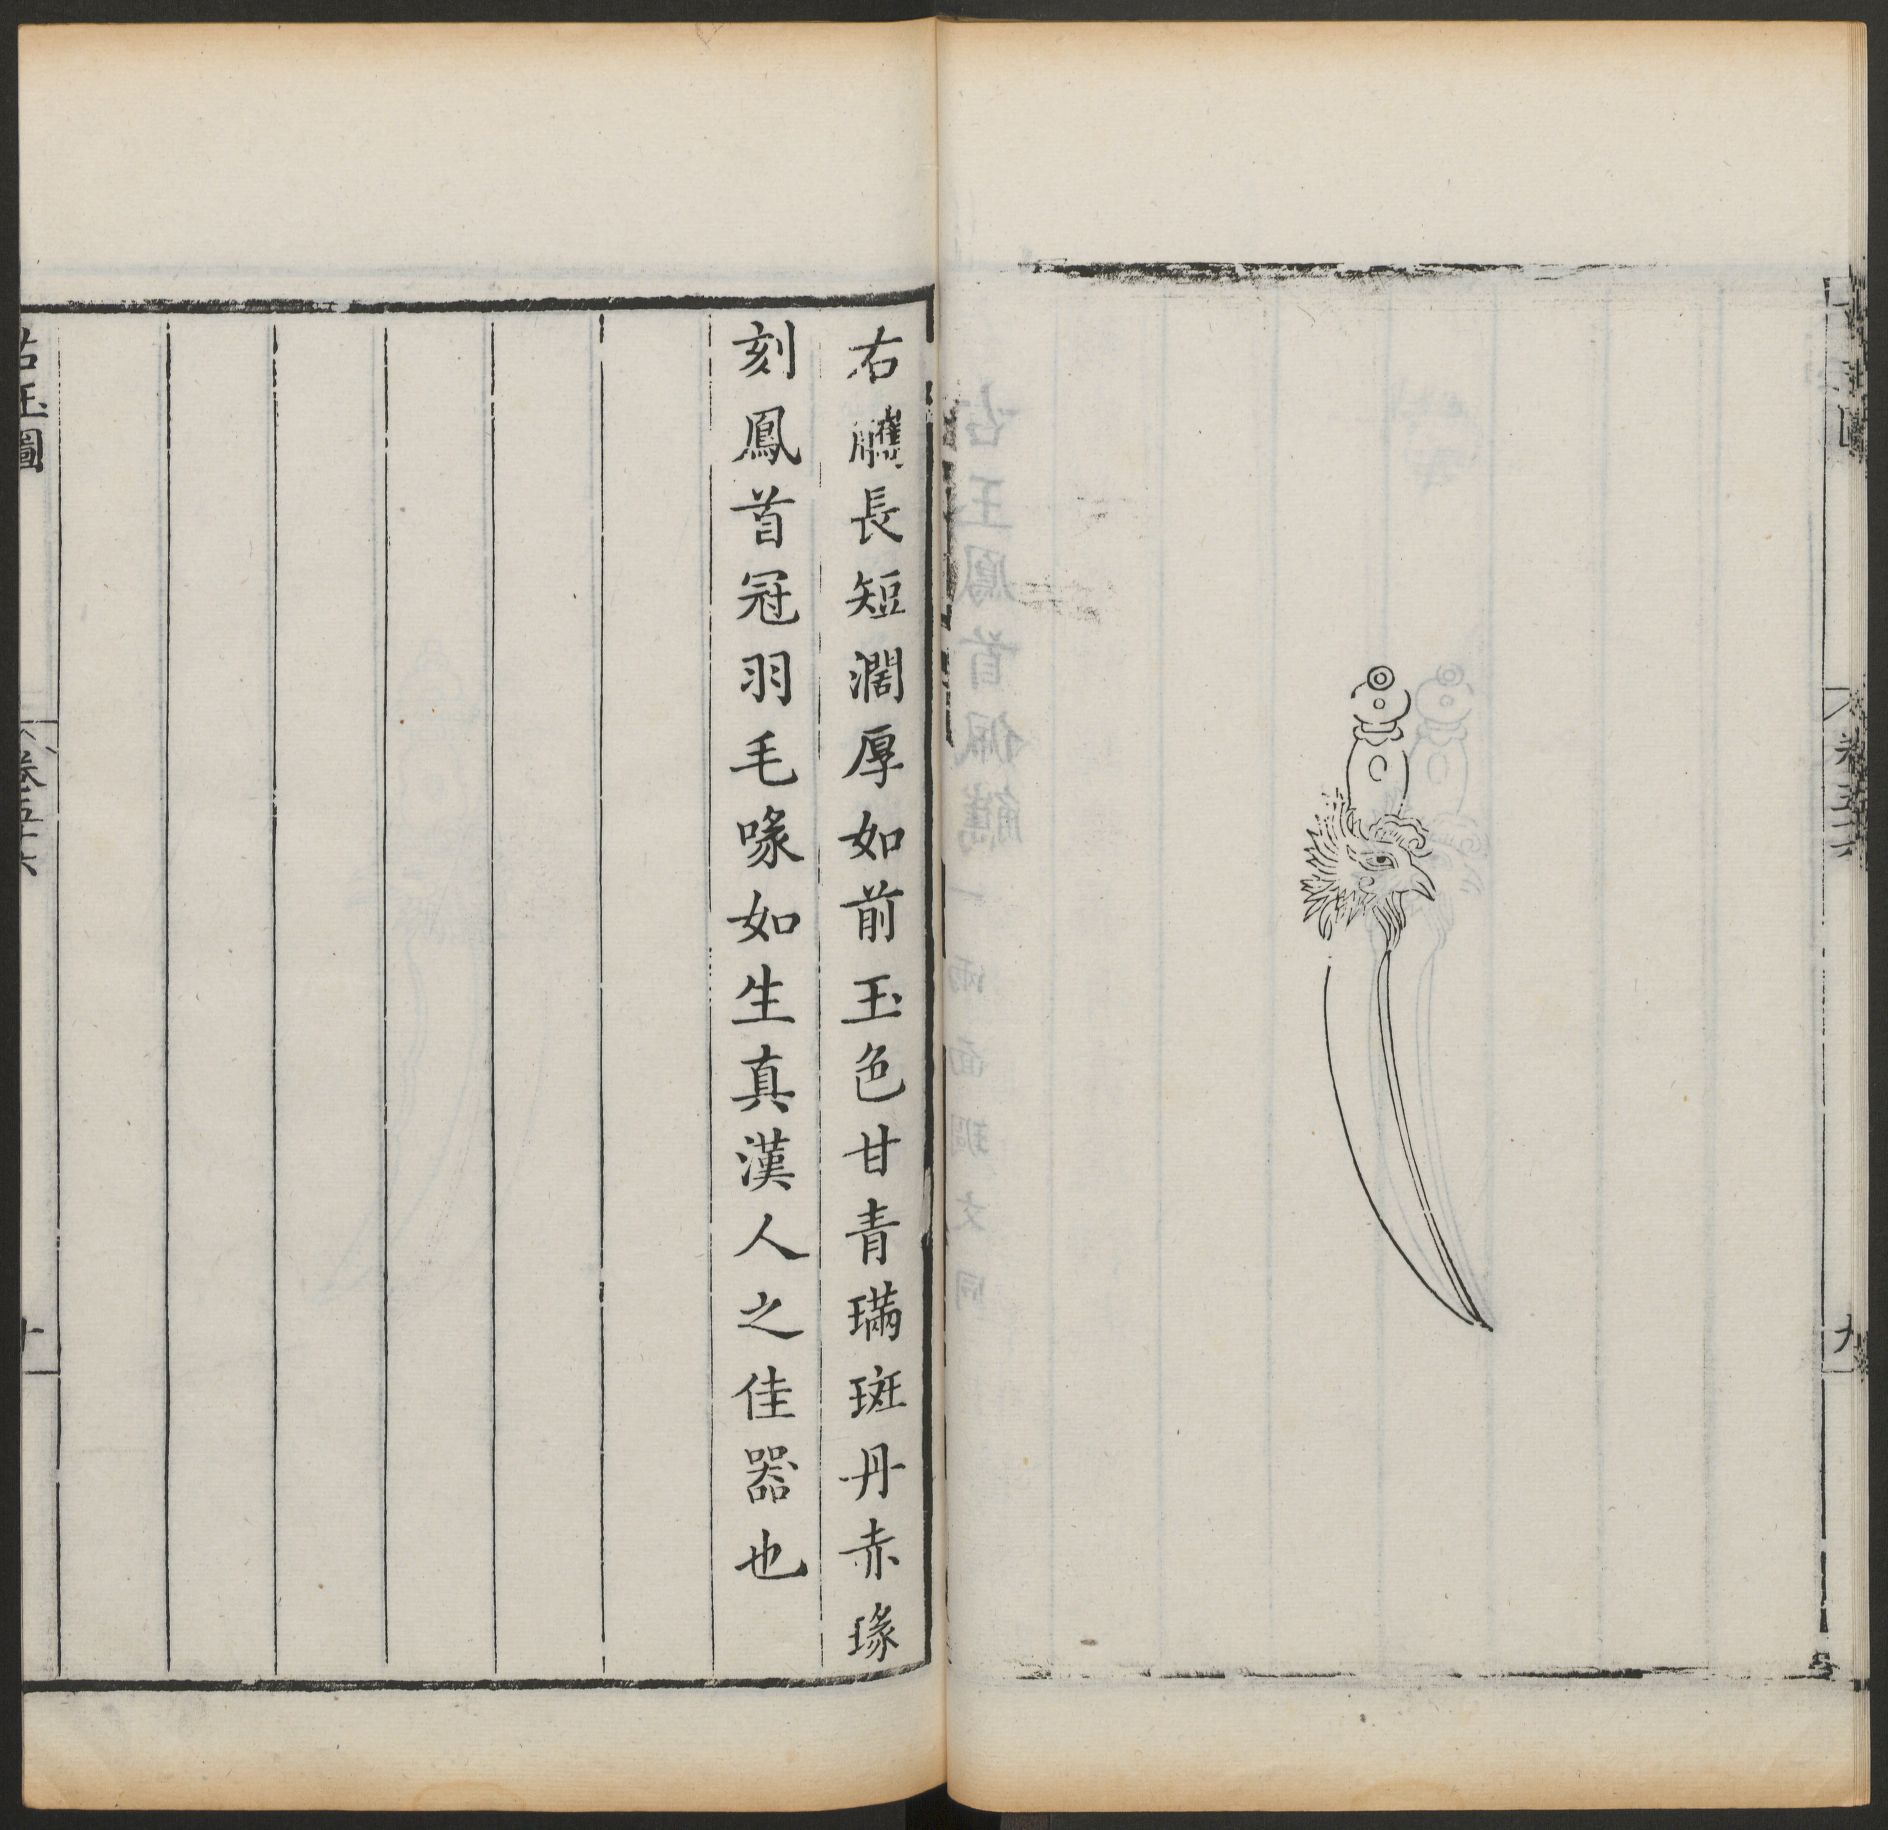 卷五十六
九
右觿長短濶厚如前玉色甘青璊斑丹赤瑑
刻鳳首冠羽毛喙如生真漢人之佳器也
古玉圖
卷五十六
十